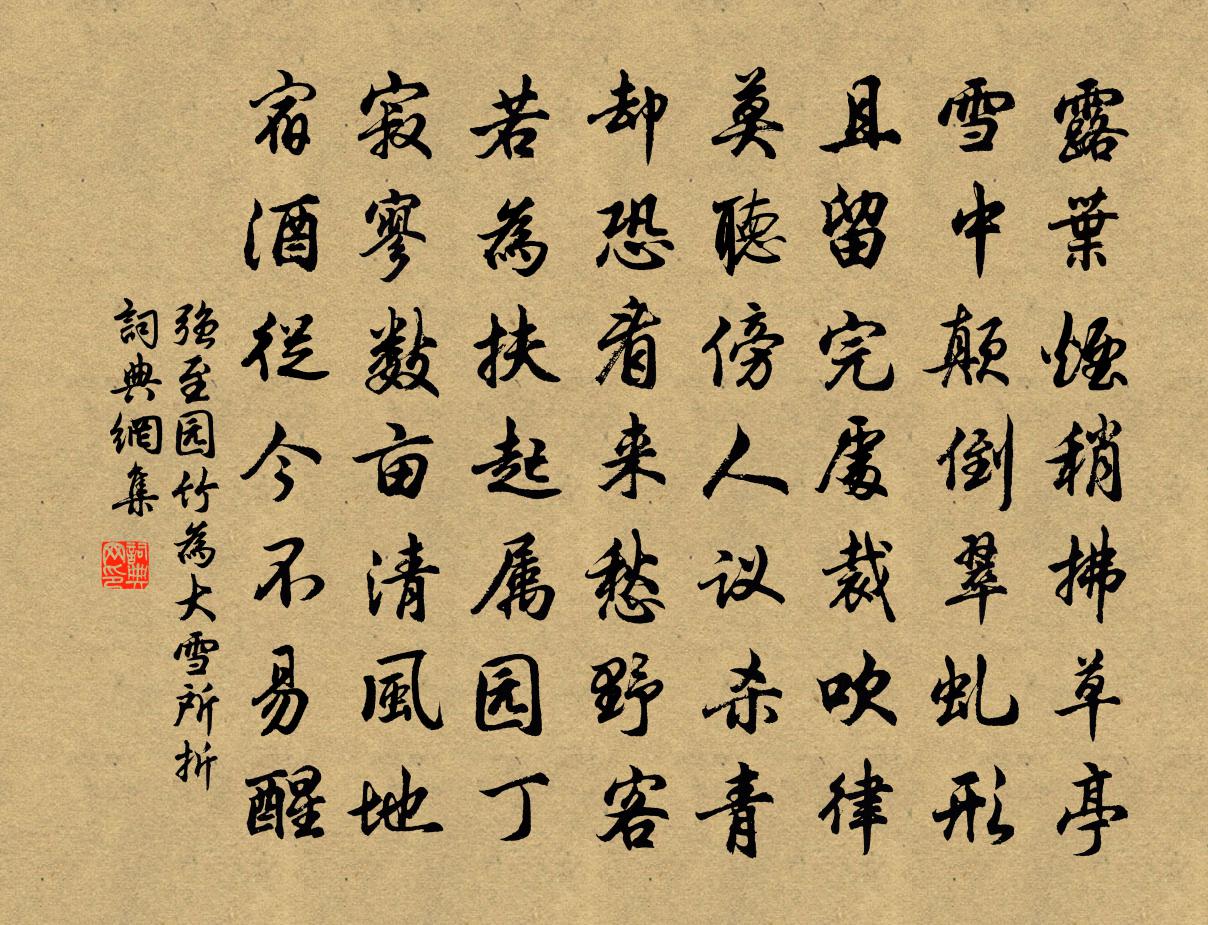 露葉煙稍拂草亭
雪中顛倒翠虬形
且留完處裁吹律
莫聽傍人议杀青
却恐看来愁野客
若為扶起属园丁
寂寥数亩清風地
宿酒從今不易醒
强至园竹為大雪所折
詞典網集
詞典网印